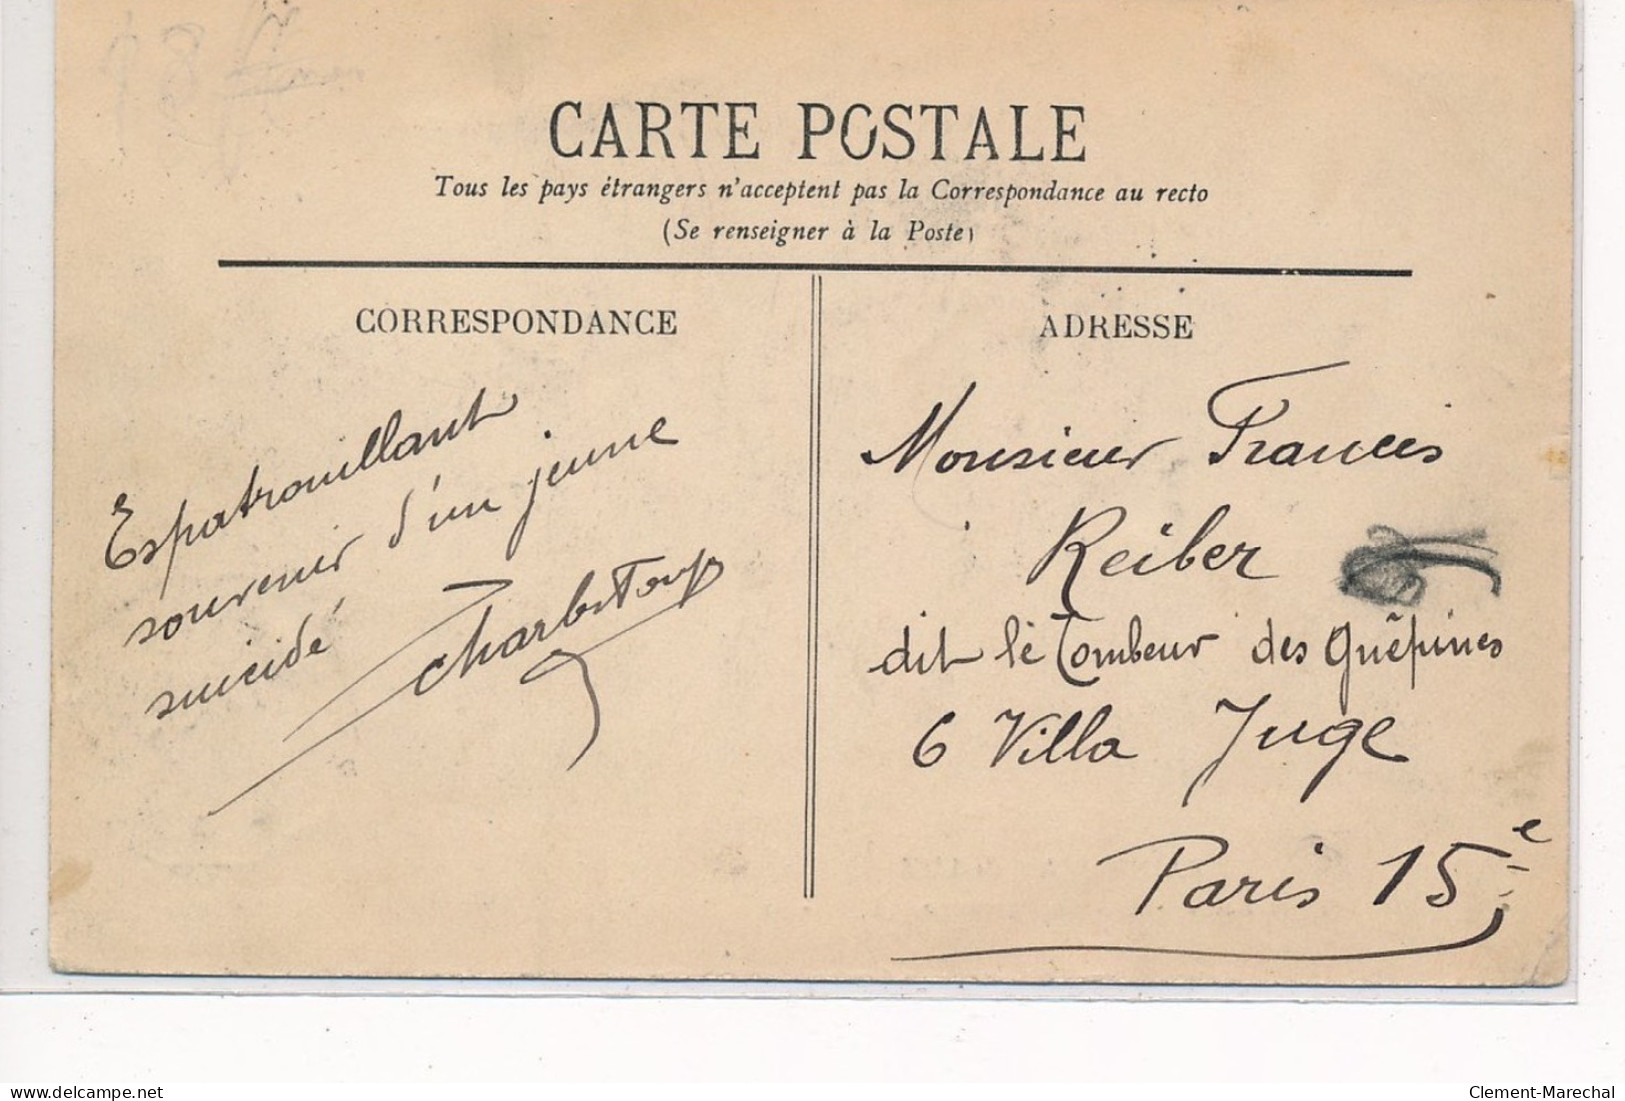 CARTE POSTALE
Tous les pays étrangers n'acceptent pas la Correspondance au recto
(Se renseigner à la Poste)
CORRESPONDANCE
Espatrouillant
souvenir d'un jeune
suicidé
ADRESSE
Monsieur Francis
Reiber
dit le Tombeur des Guêpines
6 Villa Juge
Paris 15e
delcampe.net
Clement-Marechal